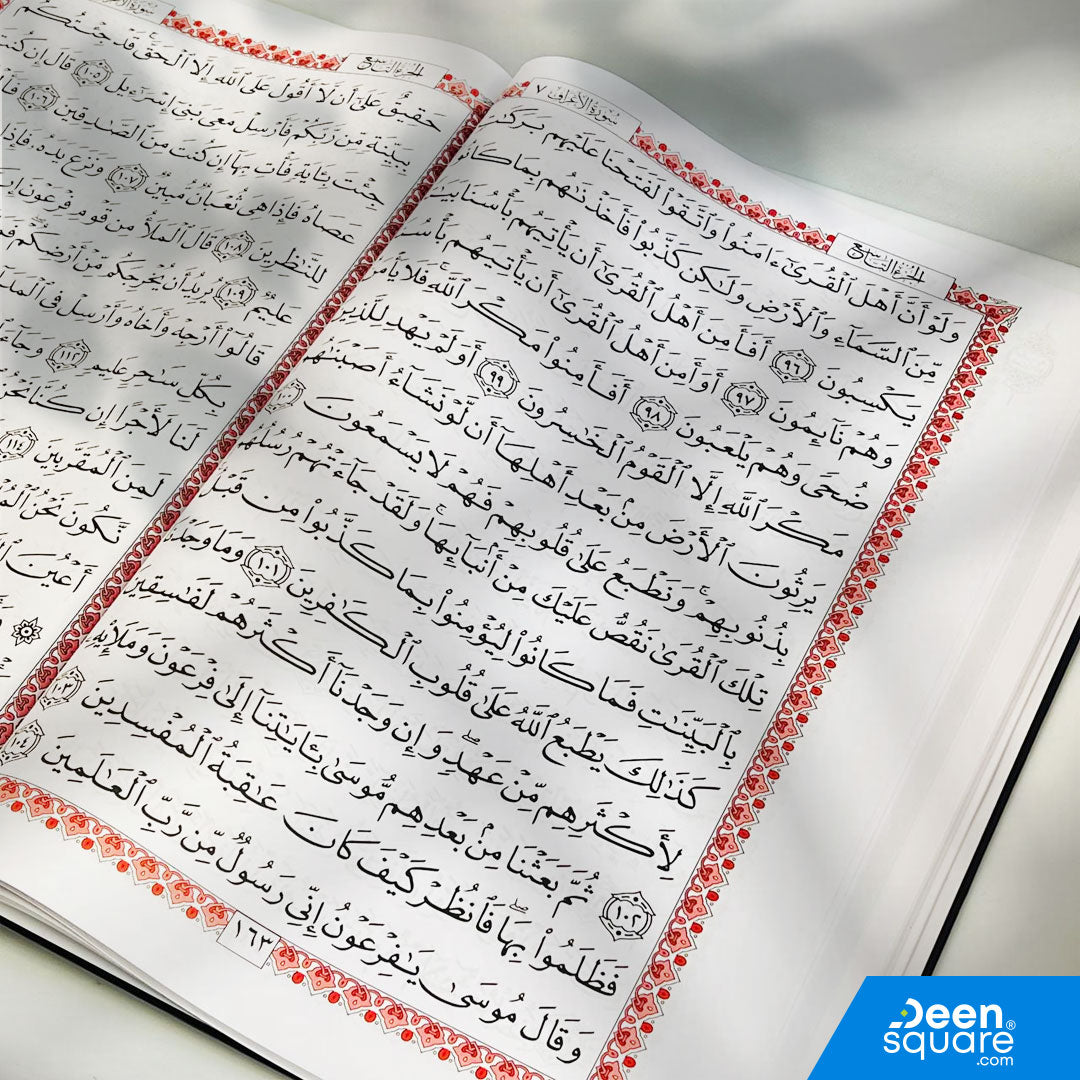 سُورَةُ الأَعْرَافِ ٧
الجُزْءُ التَّاسِعُ
وَلَوْ أَنَّ أَهْلَ ٱلْقُرَىٰٓ ءَامَنُوا۟ وَٱتَّقَوْا۟ لَفَتَحْنَا عَلَيْهِم بَرَكَٰتٍ
مِّنَ ٱلسَّمَآءِ وَٱلْأَرْضِ وَلَٰكِن كَذَّبُوا۟ فَأَخَذْنَٰهُم بِمَا كَانُوا۟
يَكْسِبُونَ ٩٦ أَفَأَمِنَ أَهْلُ ٱلْقُرَىٰٓ أَن يَأْتِيَهُم بَأْسُنَا بَيَٰتًا
وَهُمْ نَآئِمُونَ ٩٧ أَوَأَمِنَ أَهْلُ ٱلْقُرَىٰٓ أَن يَأْتِيَهُم بَأْسُنَا
ضُحًى وَهُمْ يَلْعَبُونَ ٩٨ أَفَأَمِنُوا۟ مَكْرَ ٱللَّهِ ۚ فَلَا يَأْمَنُ
مَكْرَ ٱللَّهِ إِلَّا ٱلْقَوْمُ ٱلْخَٰسِرُونَ ٩٩ أَوَلَمْ يَهْدِ لِلَّذِينَ
يَرِثُونَ ٱلْأَرْضَ مِنۢ بَعْدِ أَهْلِهَآ أَن لَّوْ نَشَآءُ أَصَبْنَٰهُم
بِذُنُوبِهِمْ ۚ وَنَطْبَعُ عَلَىٰ قُلُوبِهِمْ فَهُمْ لَا يَسْمَعُونَ ١٠٠
تِلْكَ ٱلْقُرَىٰ نَقُصُّ عَلَيْكَ مِنْ أَنۢبَآئِهَا ۚ وَلَقَدْ جَآءَتْهُمْ رُسُلُهُم
بِٱلْبَيِّنَٰتِ فَمَا كَانُوا۟ لِيُؤْمِنُوا۟ بِمَا كَذَّبُوا۟ مِن قَبْلُ
كَذَٰلِكَ يَطْبَعُ ٱللَّهُ عَلَىٰ قُلُوبِ ٱلْكَٰفِرِينَ ١٠١ وَمَا وَجَدْنَا
لِأَكْثَرِهِم مِّنْ عَهْدٍ ۖ وَإِن وَجَدْنَآ أَكْثَرَهُمْ لَفَٰسِقِينَ
١٠٢ ثُمَّ بَعَثْنَا مِنۢ بَعْدِهِم مُّوسَىٰ بِـَٔايَٰتِنَآ إِلَىٰ فِرْعَوْنَ وَمَلَإِي۟هِ
فَظَلَمُوا۟ بِهَا ۖ فَٱنظُرْ كَيْفَ كَانَ عَٰقِبَةُ ٱلْمُفْسِدِينَ ١٠٣
وَقَالَ مُوسَىٰ يَٰفِرْعَوْنُ إِنِّى رَسُولٌ مِّن رَّبِّ ٱلْعَٰلَمِينَ ١٠٤
١٦٣
الجُزْءُ التَّاسِعُ
حَقِيقٌ عَلَىٰٓ أَن لَّآ أَقُولَ عَلَى ٱللَّهِ إِلَّا ٱلْحَقَّ ۚ قَدْ جِئْتُكُم
بِبَيِّنَةٍ مِّن رَّبِّكُمْ فَأَرْسِلْ مَعِىَ بَنِىٓ إِسْرَٰٓءِيلَ ١٠٥ قَالَ إِن كُنتَ
جِئْتَ بِـَٔايَةٍ فَأْتِ بِهَآ إِن كُنتَ مِنَ ٱلصَّٰدِقِينَ ١٠٦
عَصَاهُ فَإِذَا هِىَ ثُعْبَانٌ مُّبِينٌ ١٠٧ وَنَزَعَ يَدَهُۥ فَإِذَا
لِلنَّٰظِرِينَ ١٠٨ قَالَ ٱلْمَلَأُ مِن قَوْمِ فِرْعَوْنَ
عَلِيمٌ ١٠٩ يُرِيدُ أَن يُخْرِجَكُم مِّنْ أَرْضِكُمْ
قَالُوٓا۟ أَرْجِهْ وَأَخَاهُ وَأَرْسِلْ فِى
بِكُلِّ سَٰحِرٍ عَلِيمٍ ١١٢
لَنَا لَأَجْرًا إِن كُنَّا نَحْنُ
لَمِنَ ٱلْمُقَرَّبِينَ ١١٤
نَّكُونَ نَحْنُ
أَعْيُنَ
Deen
square®
.com